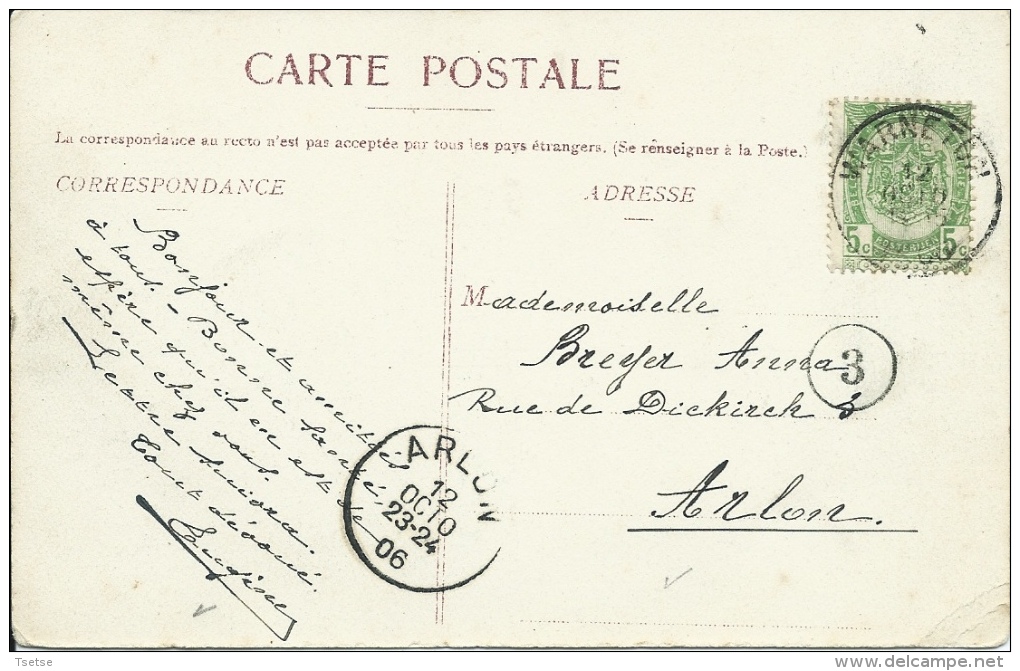 CARTE POSTALE
La correspondance au recto n'est pas acceptée par tous les pays étrangers. (Se renseigner à la Poste.)
CORRESPONDANCE
ADRESSE
Bonjour et amitiés
à tous. - Bonne santé,
espère qu'il en est de
même chez vous.
Lettre suivra.
Tout dévoué.
Eugène
Mademoiselle
Breyer Anna
Rue de Diekirch 8
Arlon.
3
WARNETON
12
OCTO
5 c
5 c
ARLON
12
OCTO
23-24
06
Tsetse
delcampe.net